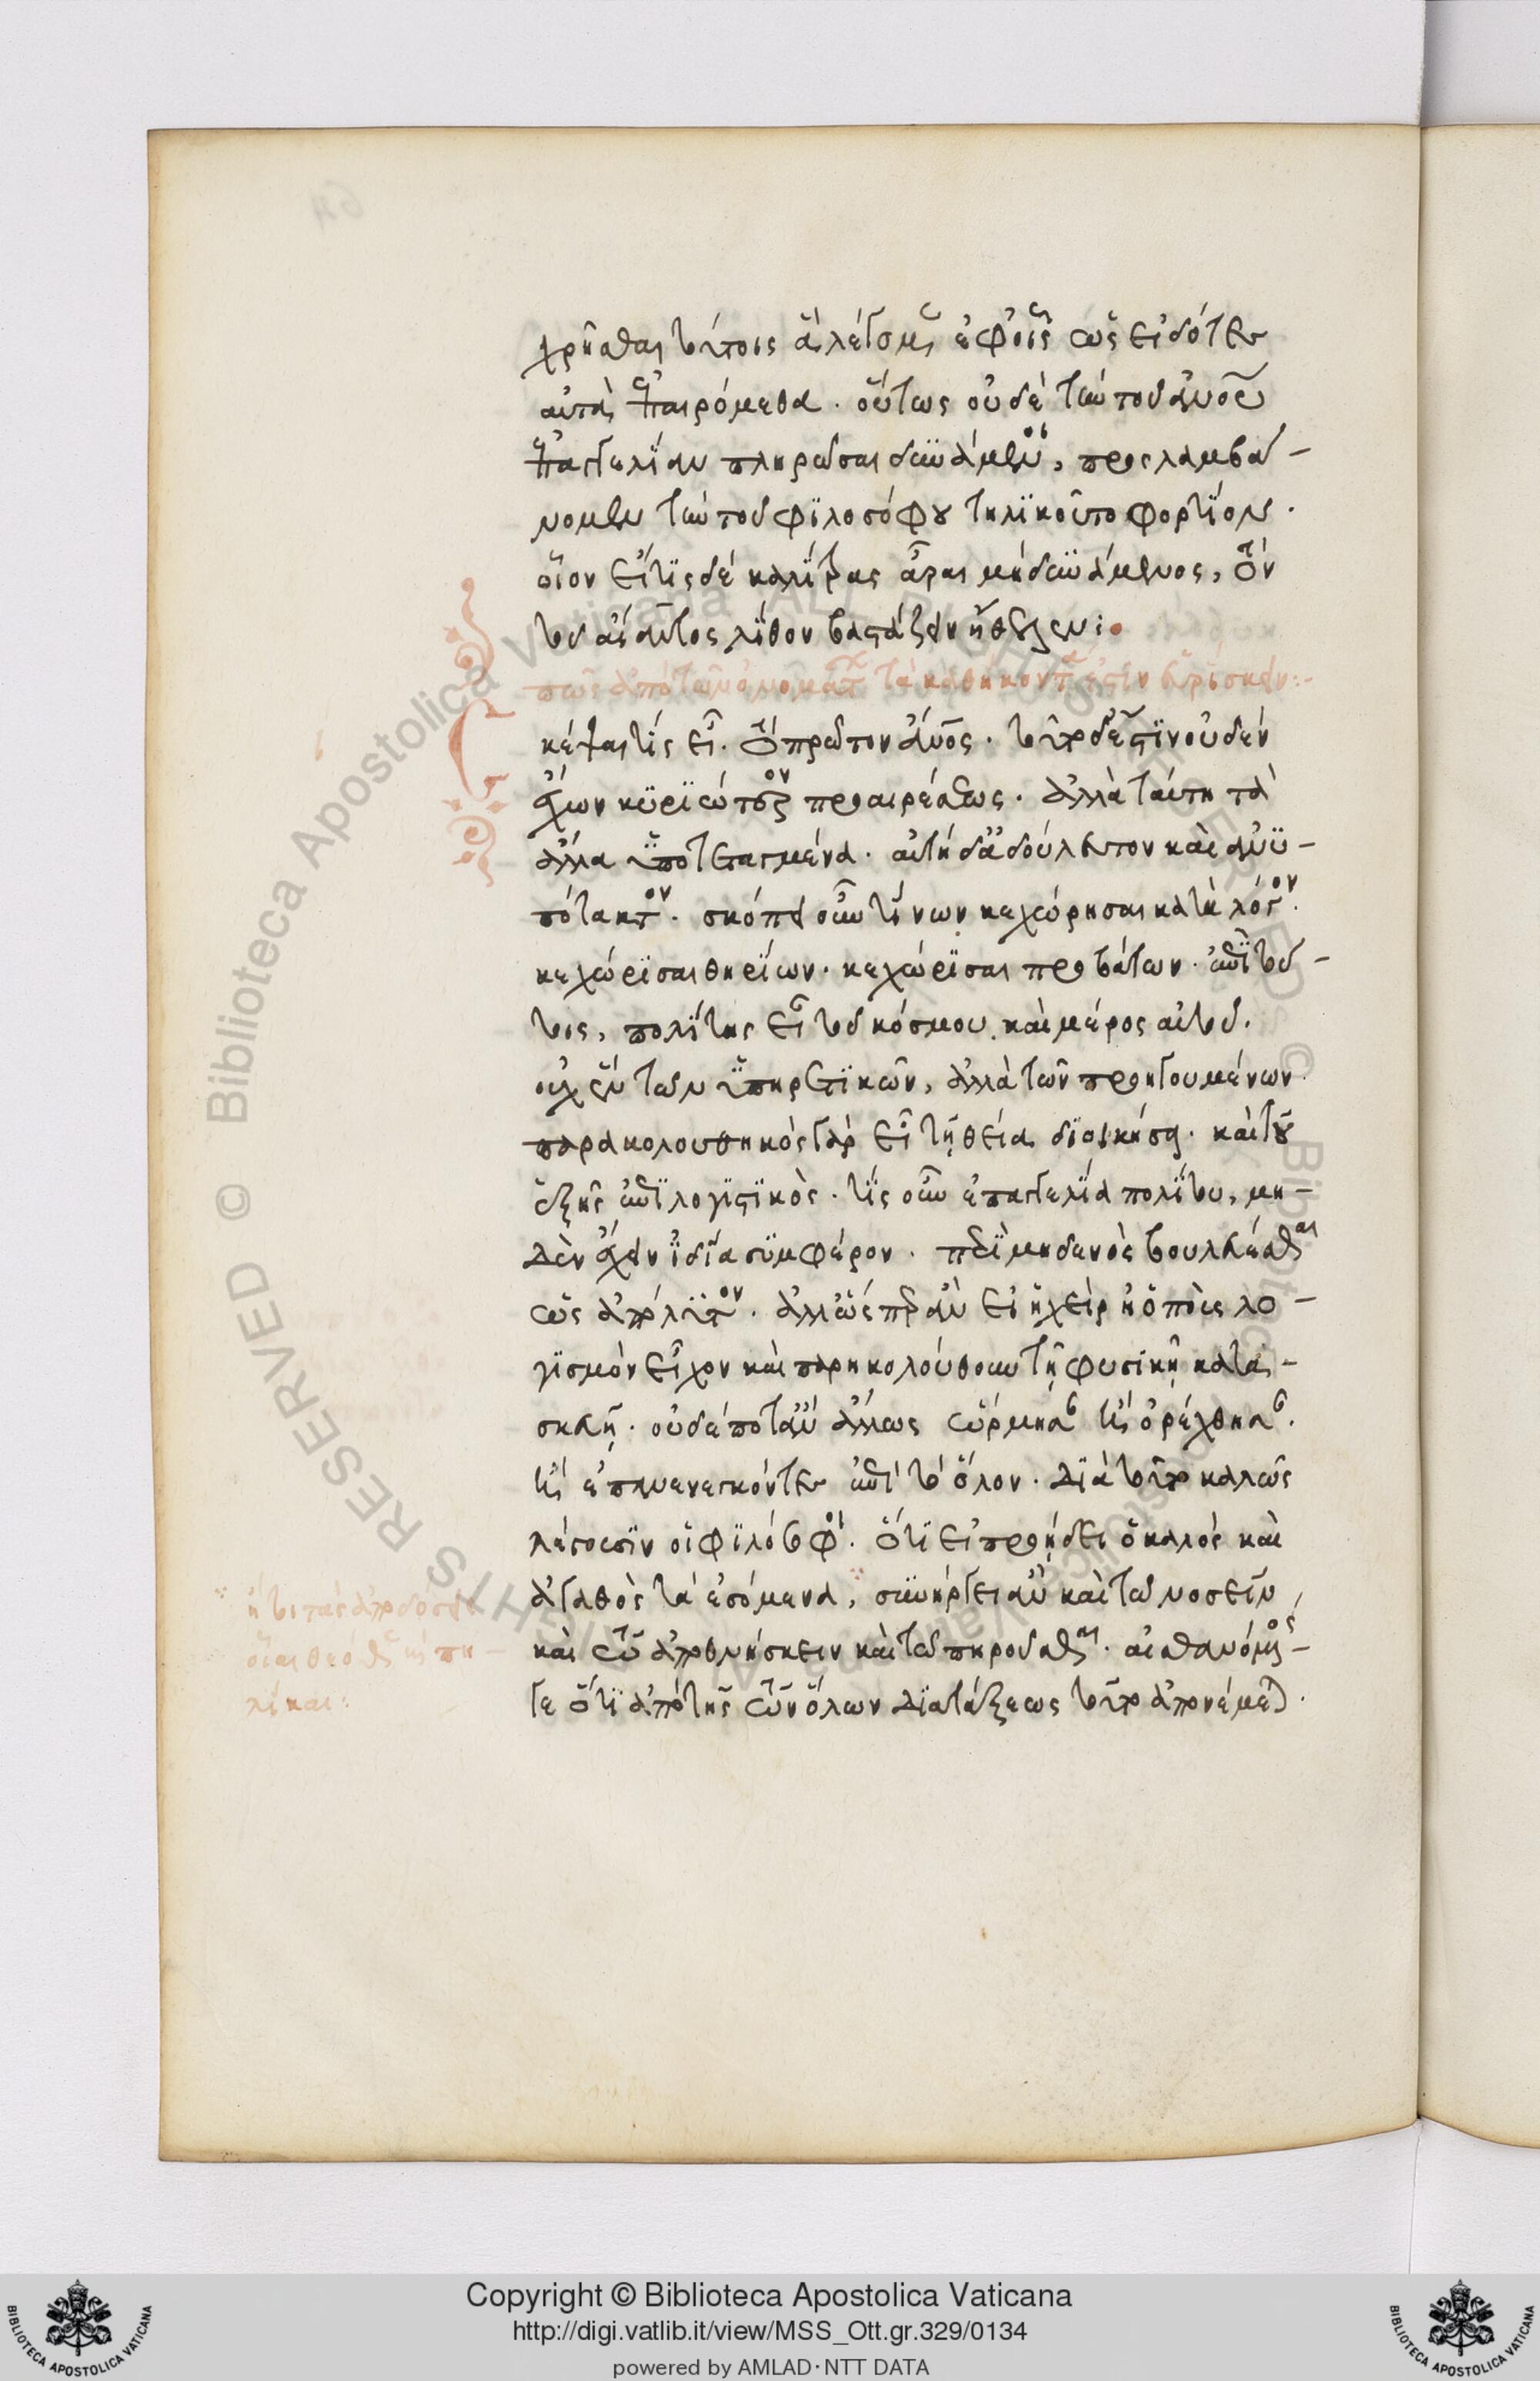 χρῆσθαι τούτοις ἃ λέγομεν ἐφ' οἷς ὡς εἰδότες
αὐτὰ ἐπαιρόμεθα. οὕτως οὐδὲ τὴν τοῦ ἀνοῦ
ἐπαγγελίαν πληρῶσαι δυνάμενοι, προσλαμβά-
νομεν τὴν τοῦ φιλοσόφου τηλικοῦτο φορτίον.
οἷον εἴ τις δέκα λίτρας ἆραι μὴ δυνάμενος, τὸν
τοῦ αἴαντος λίθον βαστάζειν ἤθελεν:
πῶς ἀπὸ τῶν ὀνομάτων τὰ καθήκοντα ἔστιν εὑρίσκειν:-
Σκέψαι τίς εἶ. τὸ πρῶτον ἄνος. τοῦτο δ' ἔστιν οὐδὲν
ἔχων κυριώτερον προαιρέσεως. ἀλλὰ ταύτη τὰ
ἄλλα ὑποτεταγμένα. αὐτὴν δ' ἀδούλευτον καὶ ἀνυ-
πότακτον. σκόπει οὖν τίνων κεχώρησαι κατὰ λόγον.
κεχώρισαι θηρίων. κεχώρισαι προβάτων. ἐπὶ τού-
τοις, πολίτης εἶ τοῦ κόσμου καὶ μέρος αὐτοῦ.
οὐχ ἓν τῶν ὑπηρετικῶν, ἀλλὰ τῶν προηγουμένων
παρακολουθηκὸς γὰρ εἶ τῇ θείᾳ διοικήσει. καὶ τοῦ
ἑξῆς ἐπιλογιστικός. τίς οὖν ἐπαγγελία πολίτου, μη-
δὲν ἔχειν ἰδίᾳ συμφέρον. περὶ μηδενὸς βουλεύεσθαι
ὡς ἀπόλυτον. ἀλλ' ὥσπερ ἂν εἰ ἡ χεὶρ ἢ ὁ ποὺς λο-
γισμὸν εἶχον καὶ παρηκολούθουν τῇ φυσικῇ κατα-
σκευῇ. οὐδέποτ' ἂν ἄλλως ὥρμησαν ἢ ὀρέχθησαν.
ἢ ἐπανενεγκόντες ἐπὶ τὸ ὅλον. διὰ τοῦτο καλῶς
λέγουσιν οἱ φιλόσοφοι. ὅτι εἰ προῄδει ὁ καλὸς καὶ
ἀγαθὸς τὰ ἐσόμενα, συνήργει ἂν καὶ τῷ νοσεῖν
καὶ τῷ ἀποθνήσκειν καὶ τῷ πηροῦσθαι. αἰσθανόμενός
γε ὅτι ἀπὸ τῆς τῶν ὅλων διατάξεως τοῦτο ἀπονέμεται.
Copyright © Biblioteca Apostolica Vaticana
http://digi.vatlib.it/view/MSS_Ott.gr.329/0134
powered by AMLAD·NTT DATA